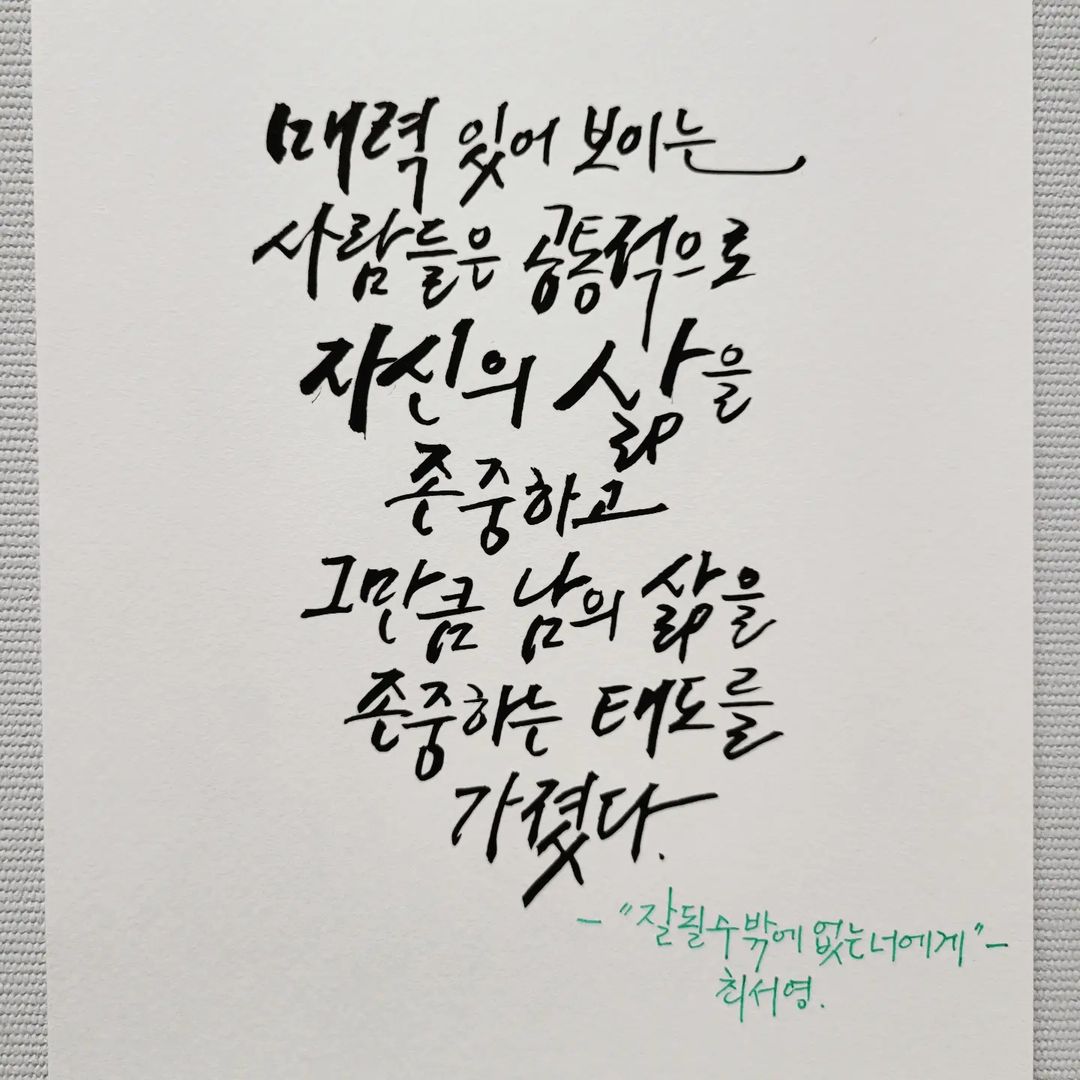 매력 있어 보이는
사람들은 공통적으로
자신의 삶을
존중하고
그만큼 남의 삶을
존중하는 태도를
가졌다.
- "잘될수밖에 없는너에게" -
최서영.